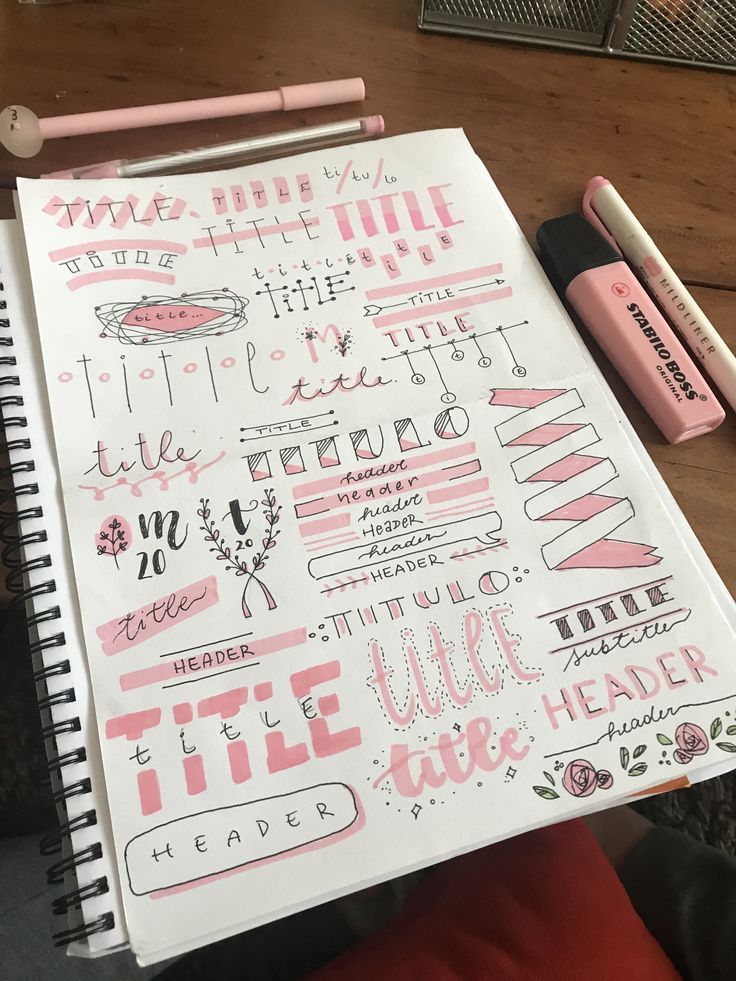 TITLE
TITLE
ti/tu/lo
TITLE
TITLE
TITLE
title
title
title
TITLE
title...
TITLE
titol
M
title
title
title
TITLE
TITULO
header
header
header
HEADER
header
HEADER
m
20
t
20
title
HEADER
TITULO
title
TITLE
subtitle
TITLE
title
title
HEADER
header
HEADER
STABILO BOSS
ORIGINAL
MILDLINER